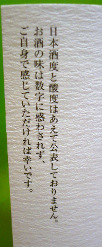 日本酒度と酸度はあえて公表しておりません。
お酒の味は数字に惑わされず、
ご自身で感じていただければ幸いです。